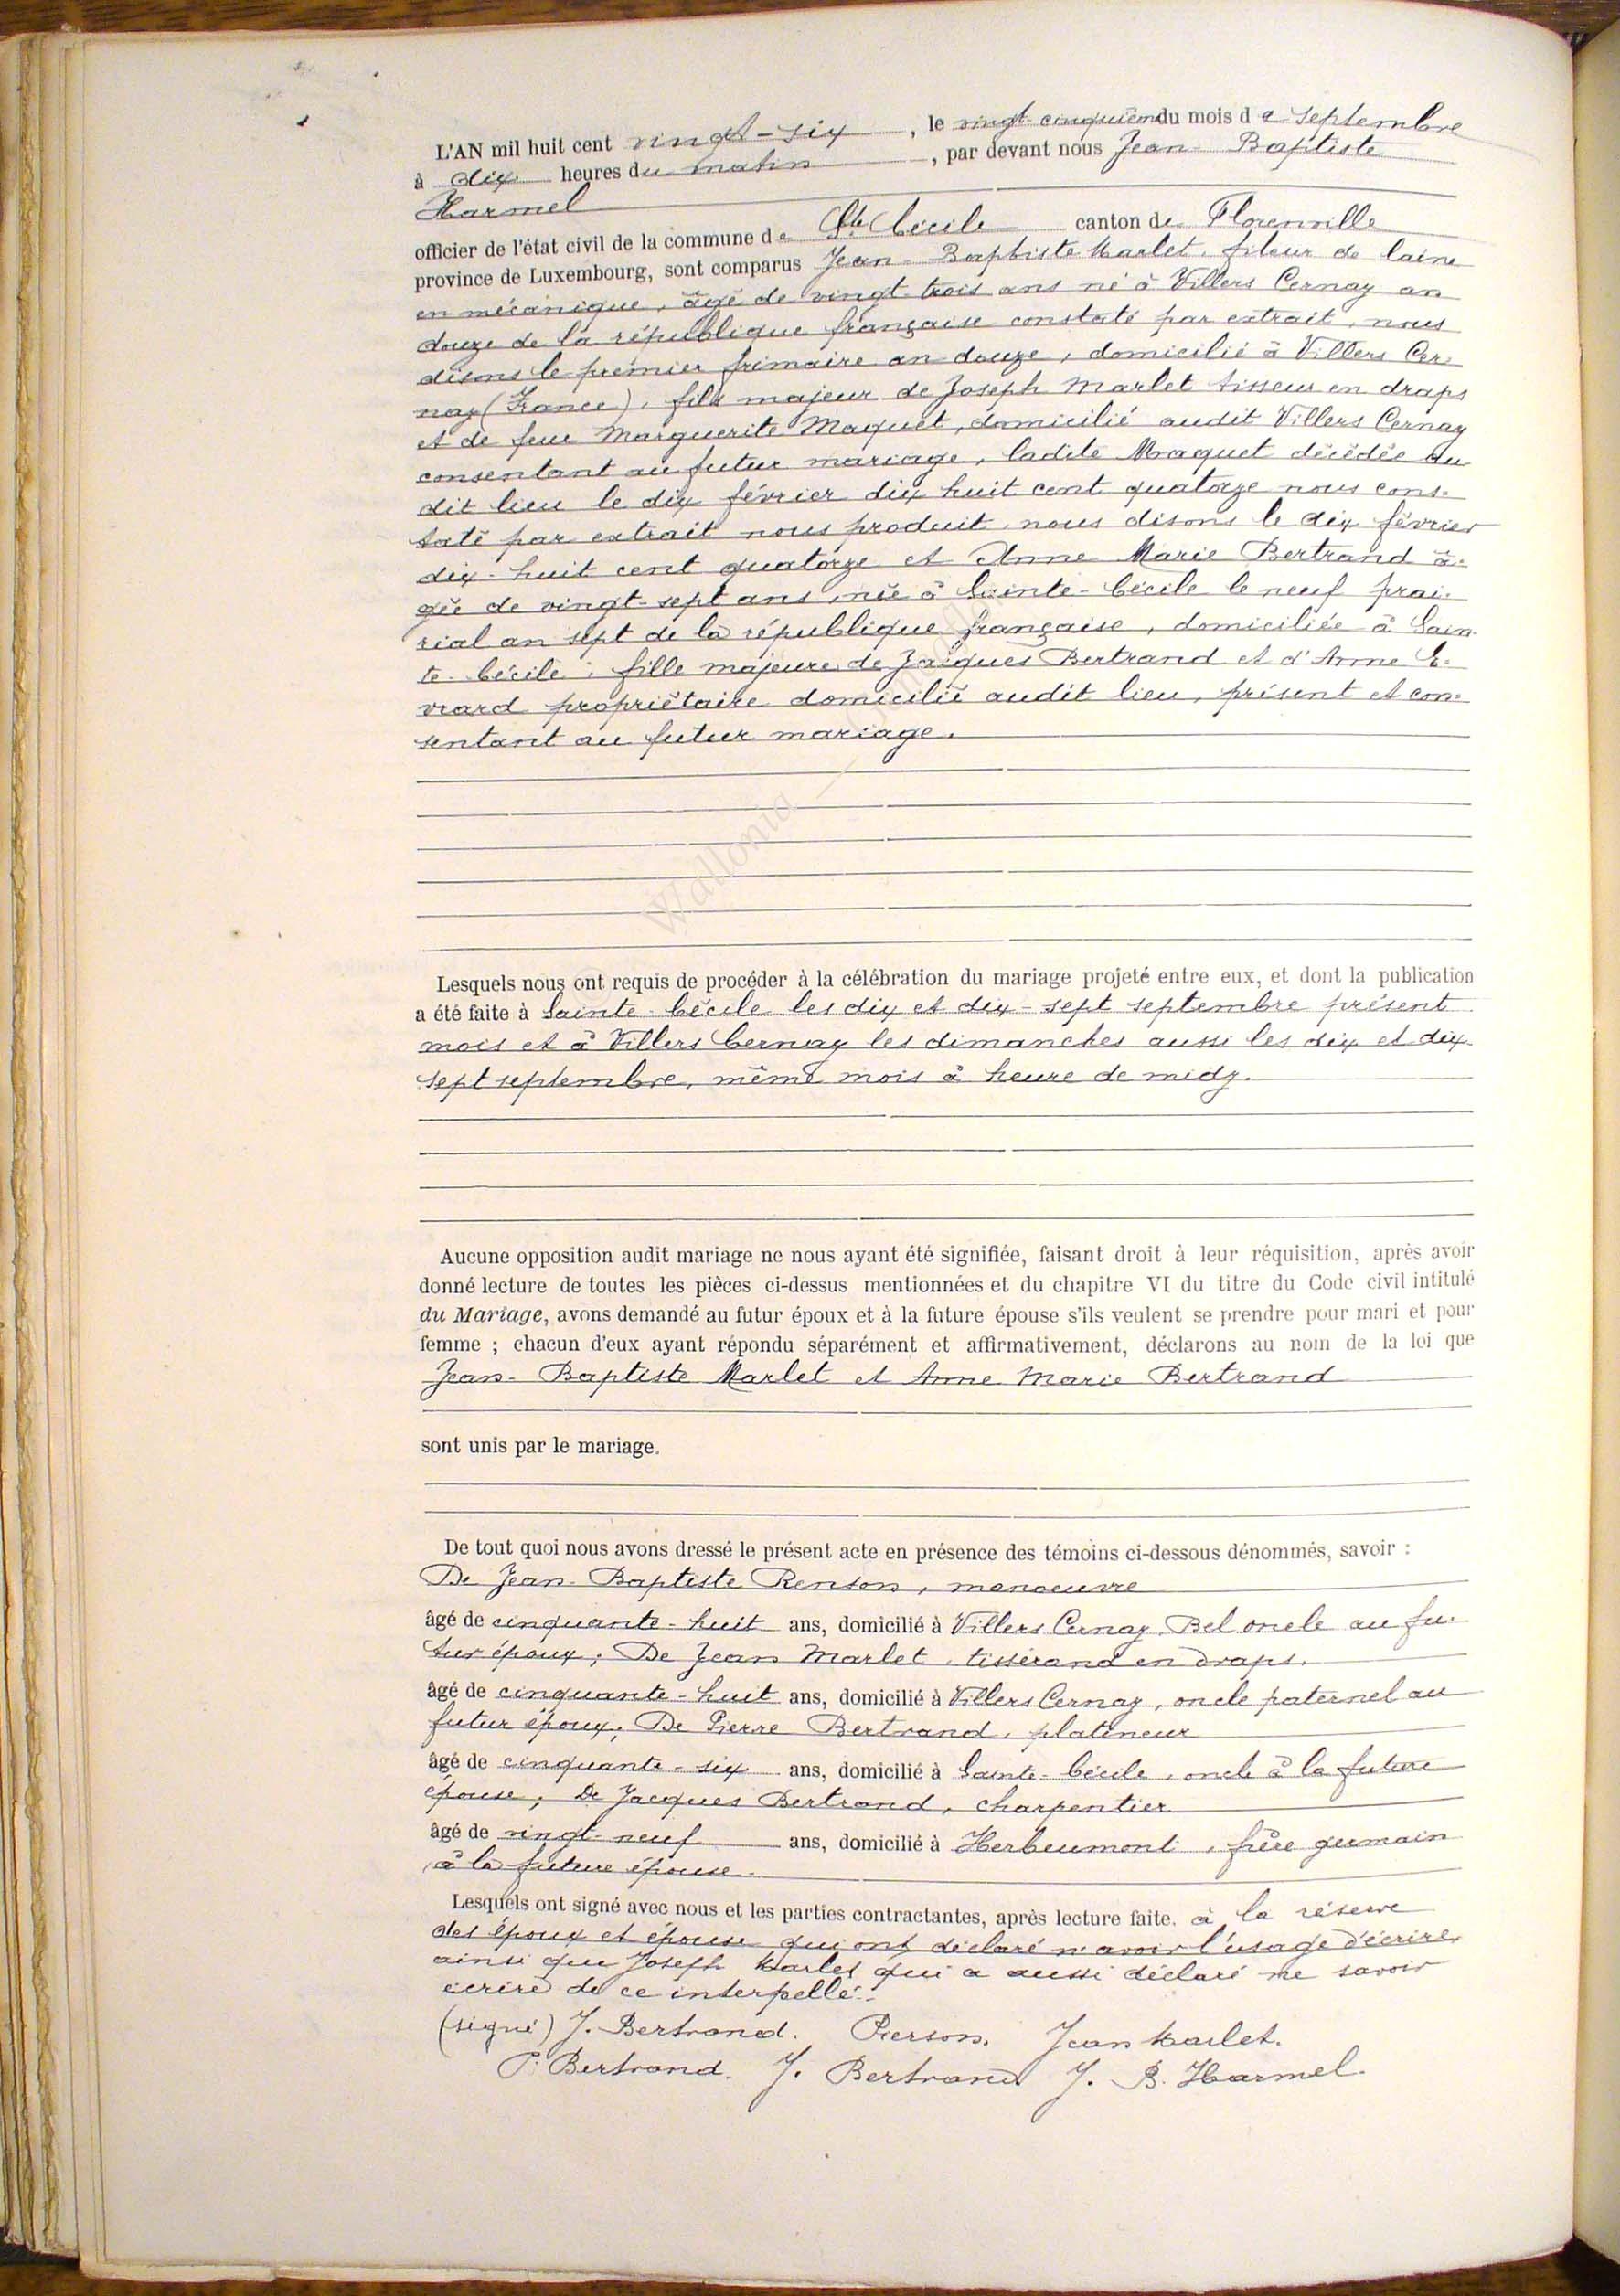 L'AN mil huit cent vingt-six, le vingt-cinquième du mois de septembre
à dix heures du matin, par devant nous Jean Baptiste
Harmel
officier de l'état civil de la commune de Ste Cécile canton de Florenville
province de Luxembourg, sont comparus Jean-Baptiste Marlet, fileur de laine
en mécanique, âgé de vingt-trois ans né à Villers Cernay an
douze de la république française constaté par extrait, nous
disons le premier frimaire an douze, domicilié à Villers Cer-
nay (France), fils majeur de Joseph Marlet tisseur en draps
et de feue Marguerite Maquet, domicilié audit Villers Cernay
consentant au futur mariage, ladite Maquet décédée au
dit lieu le dix février dix huit cent quatorze nous cons-
taté par extrait nous produit, nous disons le dix février
dix-huit cent quatorze et Anne Marie Bertrand â-
gée de vingt-sept ans, née à Sainte-Cécile le neuf prai-
rial an sept de la république française, domiciliée à Sain-
te-Cécile, fille majeure de Jacques Bertrand et d'Anne E-
vrard propriétaire domicilié audit lieu, présent et con-
sentant au futur mariage.
Lesquels nous ont requis de procéder à la célébration du mariage projeté entre eux, et dont la publication
a été faite à Sainte-Cécile les dix et dix-sept septembre présent
mois et à Villers Cernay les dimanches aussi les dix et dix-
sept septembre, même mois à heure de midy.
Aucune opposition audit mariage ne nous ayant été signifiée, faisant droit à leur réquisition, après avoir
donné lecture de toutes les pièces ci-dessus mentionnées et du chapitre VI du titre du Code civil intitulé
du Mariage, avons demandé au futur époux et à la future épouse s'ils veulent se prendre pour mari et pour
femme ; chacun d'eux ayant répondu séparément et affirmativement, déclarons au nom de la loi que
Jean-Baptiste Marlet et Anne Marie Bertrand
sont unis par le mariage.
De tout quoi nous avons dressé le présent acte en présence des témoins ci-dessous dénommés, savoir :
De Jean-Baptiste Renson, manoeuvre
âgé de cinquante-huit ans, domicilié à Villers Cernay, Bel oncle au fu-
tur époux; De Jean Marlet, tisserand en draps.
âgé de cinquante-huit ans, domicilié à Villers Cernay, oncle paternel au
futur époux; De Pierre Bertrand, platineur
âgé de cinquante-six ans, domicilié à Sainte-Cécile, oncle à la future
épouse; De Jacques Bertrand, charpentier
âgé de vingt-neuf ans, domicilié à Herbeumont, frère germain
à la future épouse.
Lesquels ont signé avec nous et les parties contractantes, après lecture faite, à la réserve
des époux et épouse qui ont déclaré n'avoir l'usage d'écrire,
ainsi que Joseph Marlet qui a aussi déclaré ne savoir
écrire de ce interpellé.
(signé) J. Bertrand. Pierson. Jean Marlet.
P. Bertrand. J. Bertrand J. B. Harmel.
Wallonia